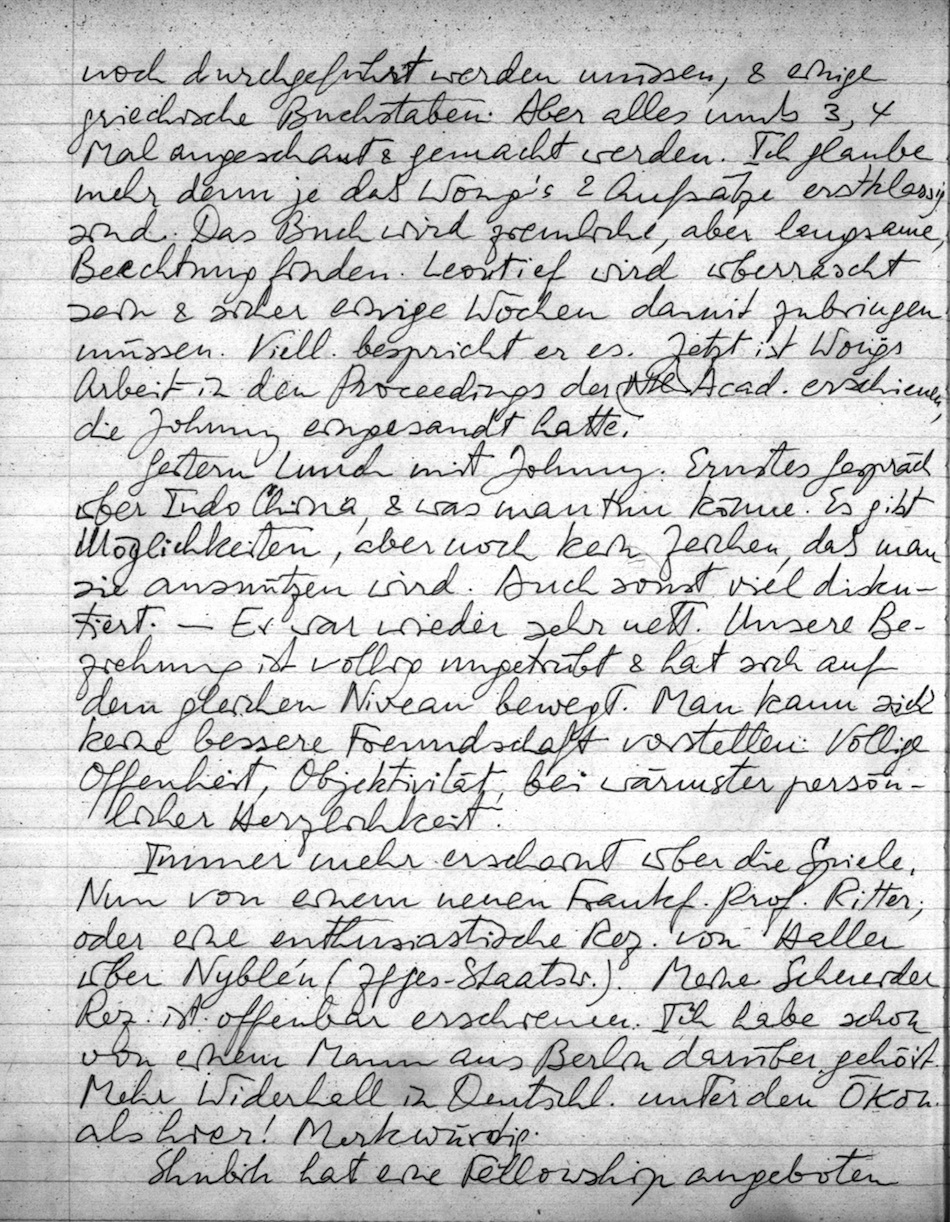 noch durchgeführt werden müssen, & einige
griechische Buchstaben. Aber alles muß 3, 4
Mal angeschaut & gemacht werden. Ich glaube
mehr denn je daß Wong's 2 Aufsätze erstklassig
sind. Das Buch wird ziemliche, aber langsame,
Beachtung finden. Leontief wird überrascht
sein & sicher einige Wochen damit zubringen
müssen. Viell. bespricht er es. Jetzt ist Wong's
Arbeit in den Proceedings der Acad. erschienen,
die Johnny eingesandt hatte.
Gestern Lunch mit Johnny. Ernstes Gespräch
über Indo China, & was man tun könne. Es gibt
Möglichkeiten, aber noch kein Zeichen, daß man
sie ausnützen wird. Auch sonst viel disku-
tiert. — Er war wieder sehr nett. Unsere Be-
ziehung ist völlig ungetrübt & hat sich auf
dem gleichen Niveau bewegt. Man kann sich
keine bessere Freundschaft vorstellen: Völlige
Offenheit, Objektivität, bei wärmster persön-
licher Herzlichkeit!
Immer mehr erscheint über die Spiele.
Nun von einem neuen Frankf. Prof. Ritter;
oder eine enthusiastische Rez. von Haller
über Nyblén (Zf ges. Staatsw.). Meine Schneider
Rez. ist offenbar erschienen. Ich habe schon
von einem Mann aus Berlin darüber gehört.
Mehr Widerhall in Deutschl. unter den Ökon.
als hier! Merkwürdig.
Shubik hat eine Fellowship angeboten